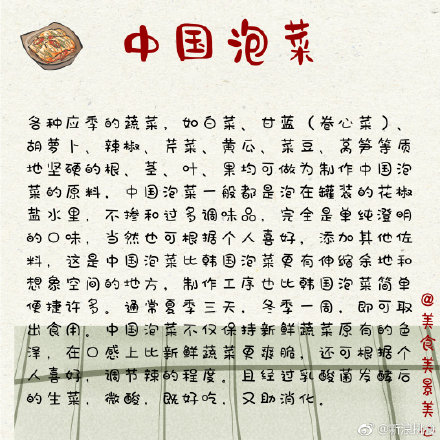 中国泡菜
各种应季的蔬菜，如白菜、甘蓝（卷心菜）、
胡萝卜、辣椒、芹菜、黄瓜、菜豆、莴笋等质
地坚硬的根、茎、叶、果均可做为制作中国泡
菜的原料，中国泡菜一般都是泡在罐装的花椒
盐水里，不掺和过多调味品，完全是单纯澄明
的口味，当然也可根据个人喜好，添加其他佐
料，这是中国泡菜比韩国泡菜更有伸缩余地和
想象空间的地方，制作工序也比韩国泡菜简单
便捷许多。通常夏季三天，冬季一周，即可取
出食用。中国泡菜不仅保持新鲜蔬菜原有的色
泽，在口感上比新鲜蔬菜更爽脆，还可根据个
人喜好，调节辣的程度。且经过乳酸菌发酵后
的生菜，微酸，既好吃，又助消化。
@美食美景美